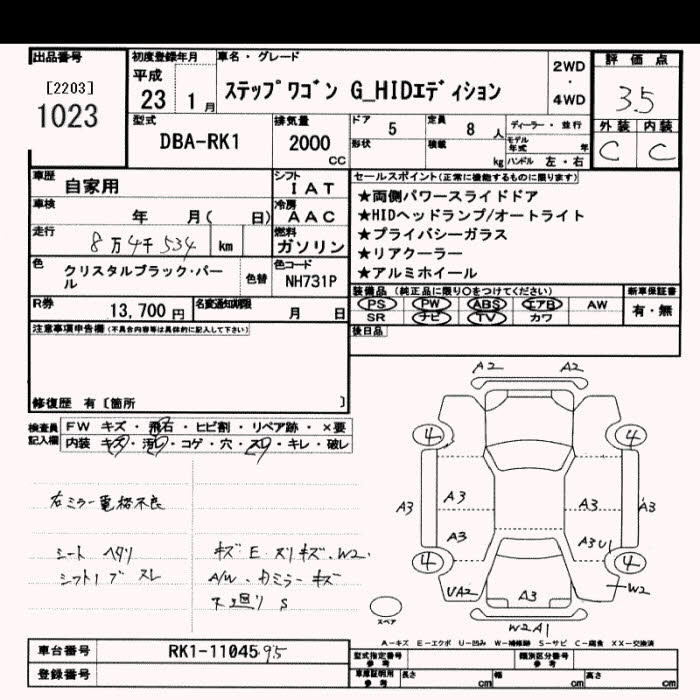 出品番号
[2203]
1023
初度登録年月
平成
23 1 月
車名・グレード
ステップワゴン G_HIDエディション
2WD
・
4WD
評価点
3.5
外装 内装
C C
型式
DBA-RK1
排気量
2000
CC
ドア 5
定員 8 人
形状
積載 kg
ディーラー・並行
モデル年式 年
ハンドル 左・右
車歴 自家用
シフト
IAT
車検 年 月( 日)
冷房
AAC
走行 8万4千534 km
燃料
ガソリン
色 クリスタルブラック・パール
色替
色コード
NH731P
R券 13,700 円
名変通知期限 月 日
セールスポイント(正常に機能するものに限ります)
★両側パワースライドドア
★HIDヘッドランプ/オートライト
★プライバシーガラス
★リアクーラー
★アルミホイール
装備品(純正品に限り○をつけてください)
新車保証書
PS PW ABS エアB AW
SR ナビ TV カワ
有・無
後日品
注意事項申告欄(不具合内容等は具体的に記入して下さい)
修復歴 有〔箇所 〕
検査員記入欄
FW キズ・飛石・ヒビ割・リペア跡・×要
内装 キズ・汚レ・コゲ・穴・スレ・キレ・破レ
右ミラー電格不良
シート ヘタリ
シフトノブ スレ
キズ E スリキズ.W2.
A/W.カミラーキズ
下廻り S
A2 A2
4 4
A3 A3 A3 A3
A3 A3U1
4 4
UA2 A3 W2
W2A1
スペア
A-キズ E-エクボ U-凹み W-補修跡 S-サビ C-腐食 XX-交換済
車台番号 RK1-1104595
登録番号
型式指定番号 参考
類別区分番号 参考
車庫証明用 参考
長さ cm 幅 cm 高さ cm